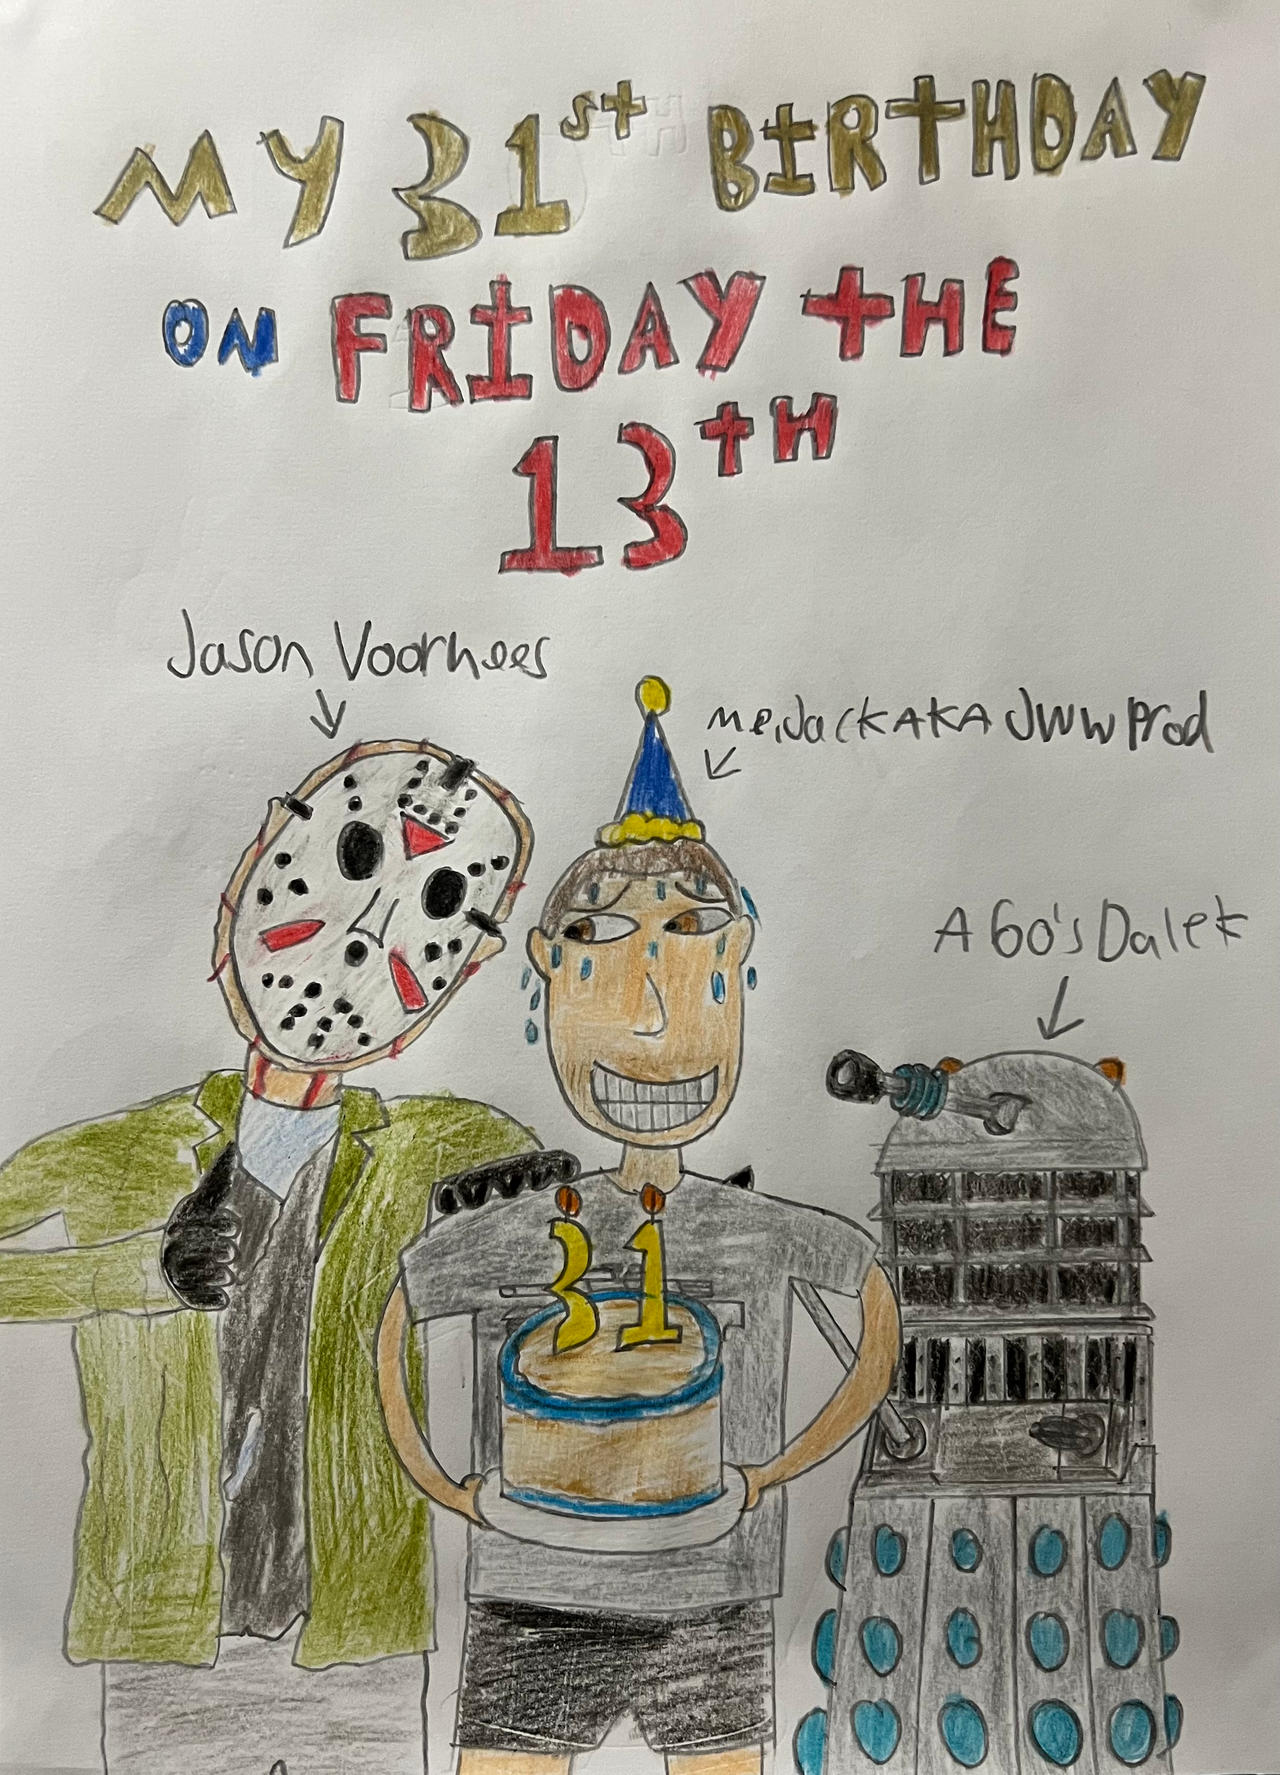 MY 31ST BIRTHDAY
ON FRIDAY THE
13TH
Jason Voorhees
me, Jack AKA JWW Prod
A 60's Dalek
31